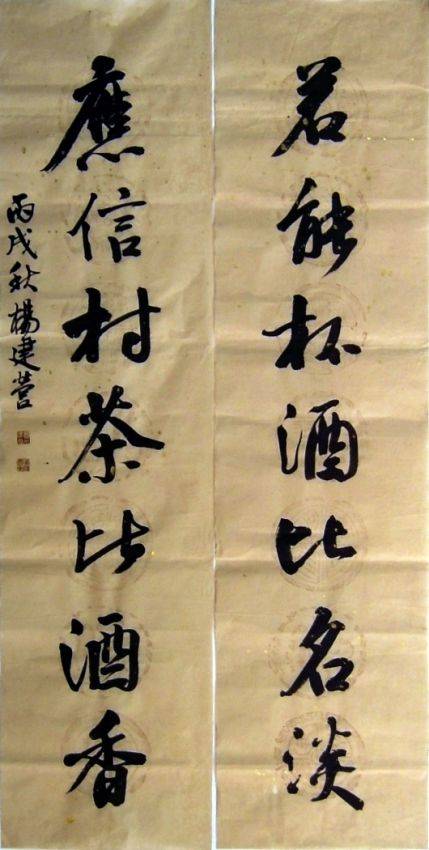 若能杯酒比名淡
應信村茶比酒香
丙戌秋楊建營